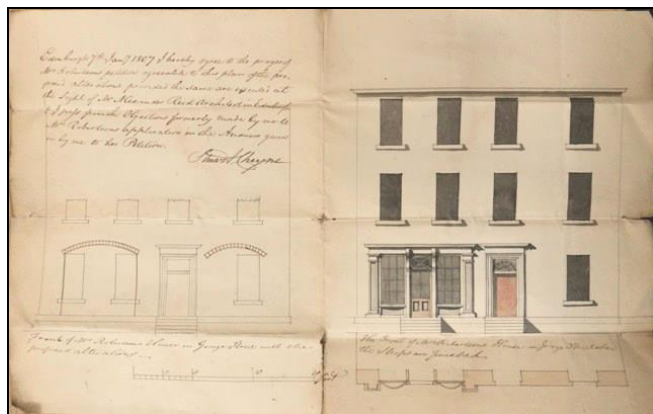 Edinburgh 7th Jany 1807 I hereby agree to the prayer of
Mrs Robertsons petition agreeable to this plan of the pro
posed alterations provided the same are executed at
the Sight of Mr Alexander Reid Architect in Edinburgh
& I pass from the Objections formerly made by me to
Mrs Robertsons application in the Answers given
in by me to her Petition.
Front of Mrs Robertsons House in George Street with the
proposed alterations
The Front of Mrs Robertsons House in George Street when
the Shops are finished